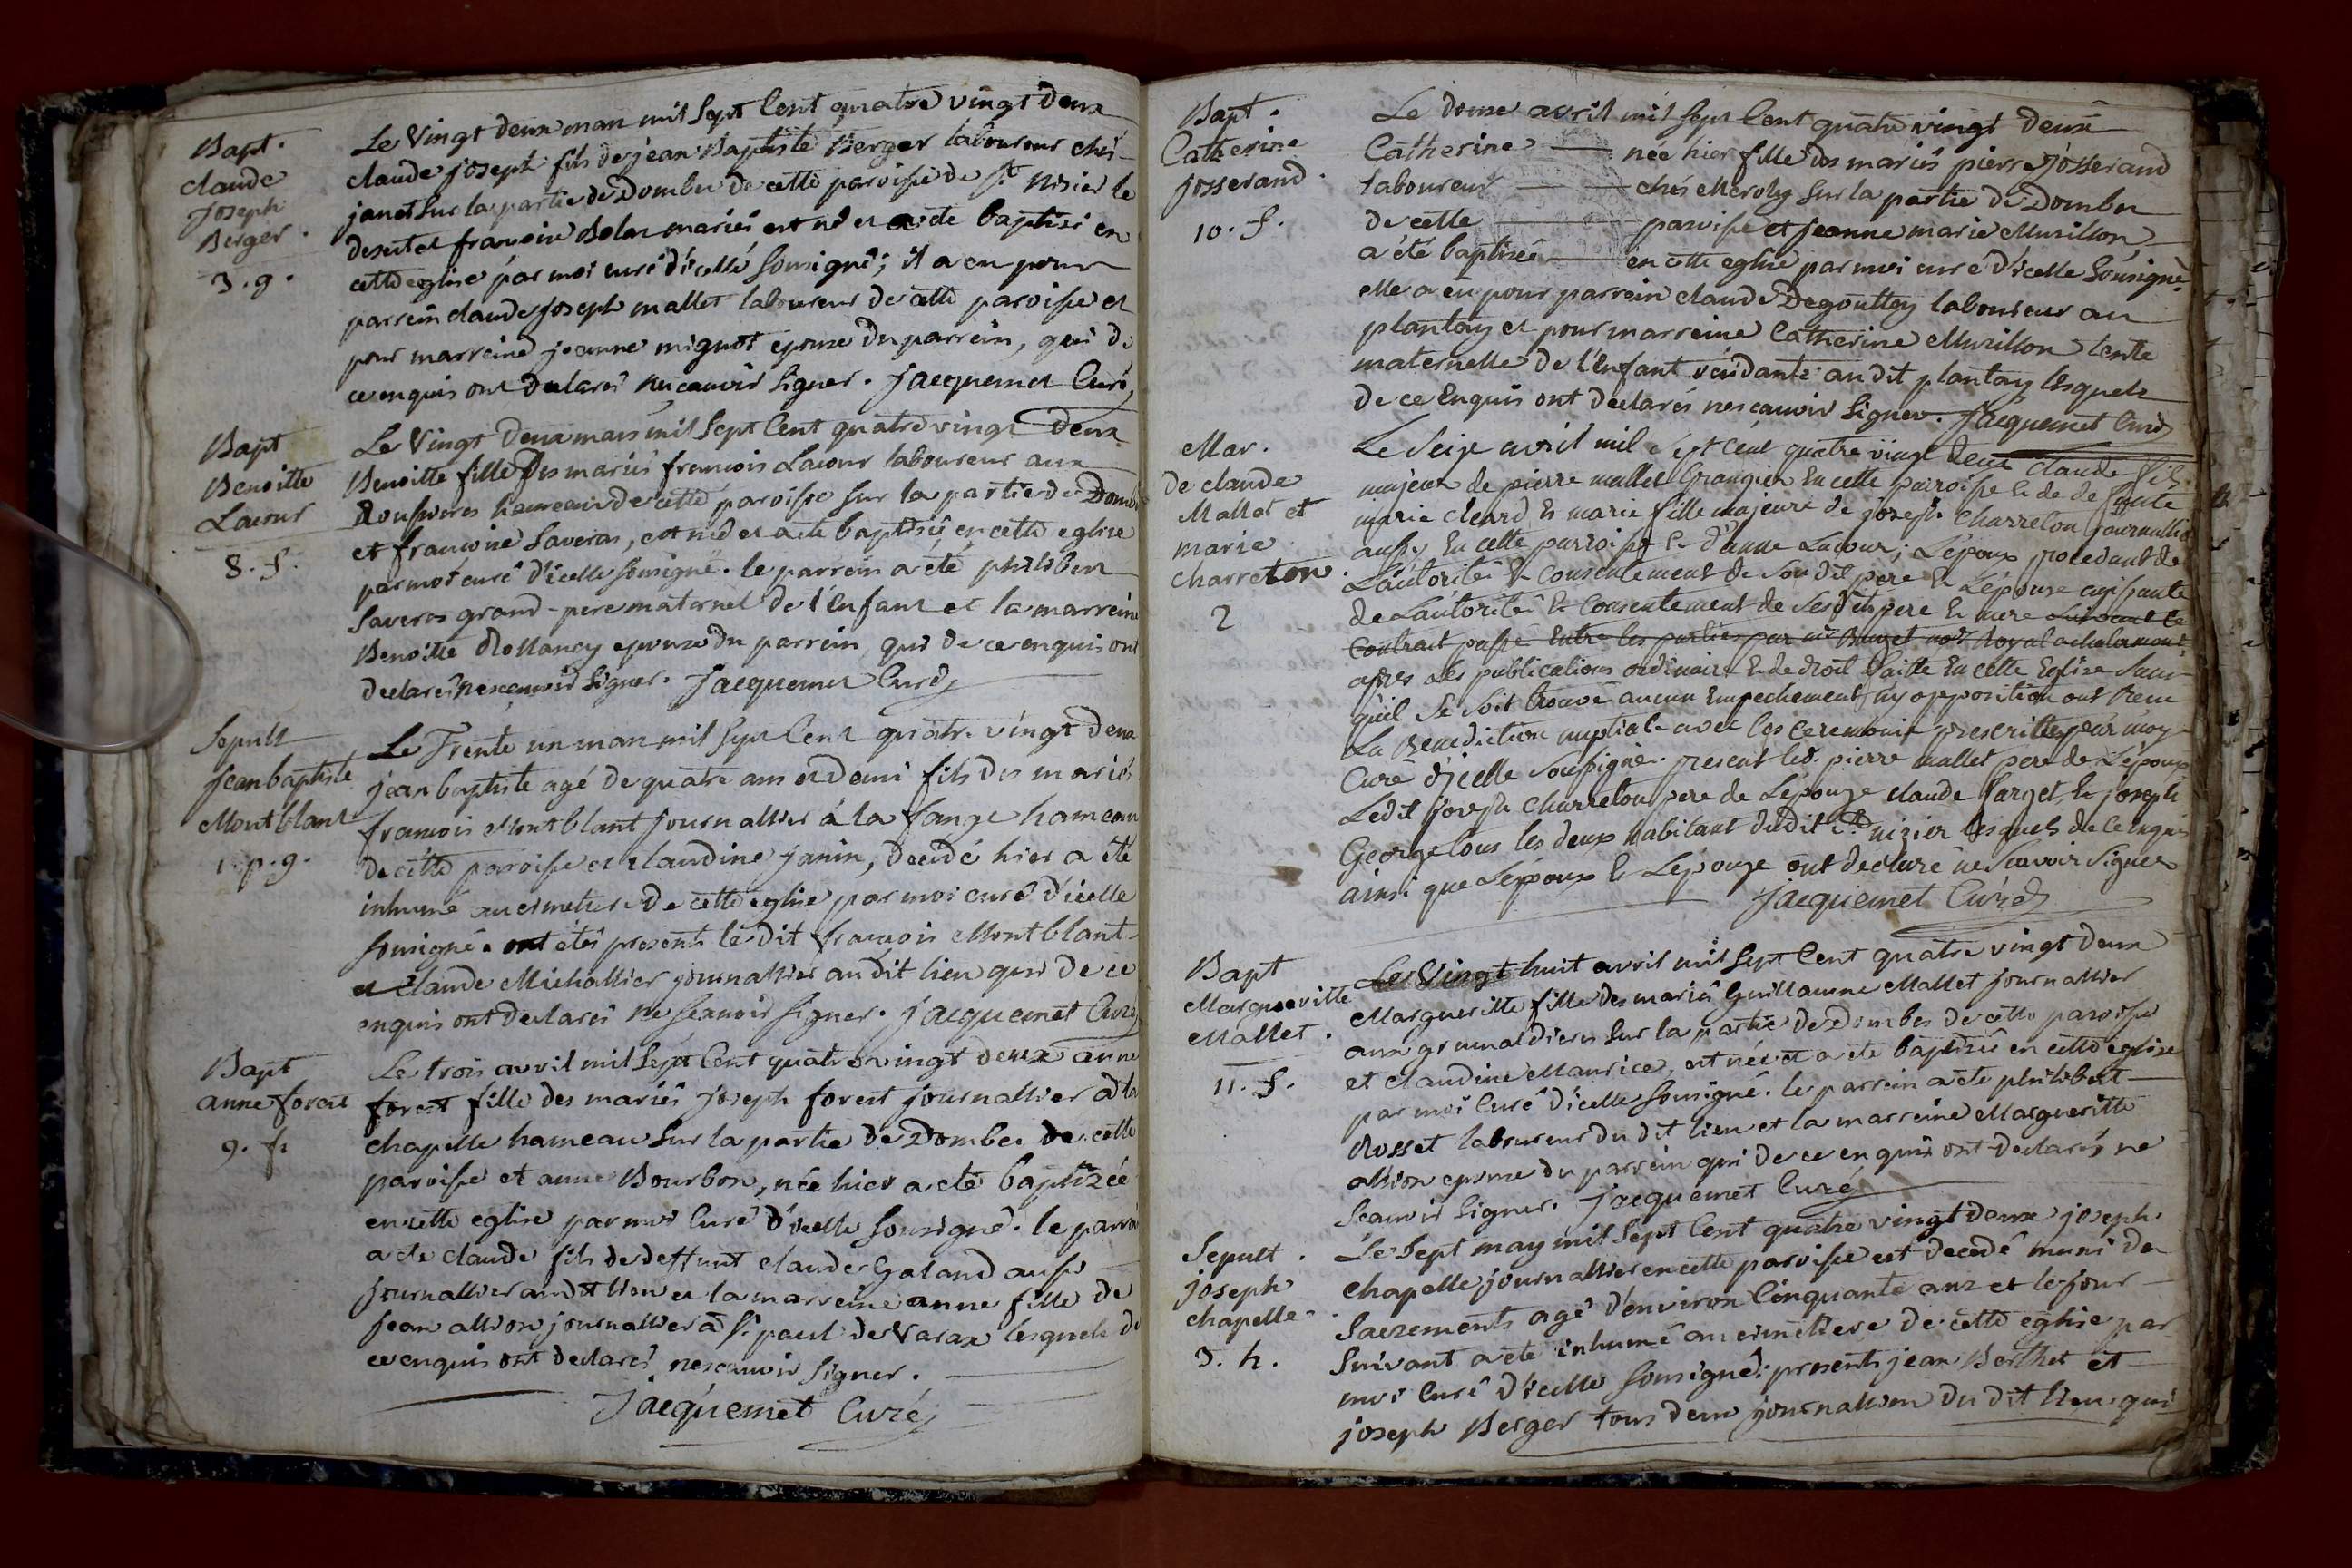 Bapt.
claude
Joseph
Berger.
3. g.
Le Vingt deux mars mil Sept Cent quatre vingt deux
claude joseph fils de jean Baptiste Berger laboureur ches
janet Sur la partie de Dombes de cette paroisse de St. Nizier le
desert et francoise Bolas mariés est né et a été baptisé en
cette eglise par moi curé d'icelle Sousigné; il a eu pour
parrein claude joseph mallet laboureur de cette paroisse et
pour marreine jeanne mignot epouse du parrein, qui de
ce enquis ont declarés ne scavoir Signer. Jacquemet Curé
Bapt
Benoitte
Lacour
8. f.
Le Vingt deux mars mil Sept Cent quatre vingt deux
Benoitte fille des mariés francois Lacour laboureur aux
hameau de cette paroisse sur la partie de Dombes
et francoise Saveras, est née et a été baptisée en cette eglise
par moi curé d'icelle sousigné. le parrein a été philibert
Saveras grand-pere maternel de l'enfant et la marreine
Benoitte Rollancy epouse du parrein qui de ce enquis ont
declarés ne scavoir Signer. Jacquemet Curé
Sepult
jean baptiste
Montblant
1. p. g.
Le Trente un mars mil Sept Cent quatre vingt deux
jean baptiste agé de quatre ans et demi fils des mariés
francois Montblant journallier à la fange hameau
de cette paroisse et claudine janin, decedé hier a été
inhumé au cimetiere de cette eglise par moi curé d'icelle
sousigné. ont étés presents le dit francois Montblant
et claude Michallier journallier au dit lieu qui de ce
enquis ont declarés ne scavoir signer. Jacquemet Curé
Bapt
anne forest
9. f.
Le trois avril mil Sept Cent quatre vingt deux anne
forest fille des mariés joseph forest journallier à la
chapelle hameau Sur la partie de Dombes de cette
paroisse et anne Bourbon, née hier a été baptizée
en cette eglise par moi Curé d'icelle Sousigné. le parrein
a été claude fils de deffunt claude Galand aussi
journallier au dit lieu et la marreine anne fille de
jean allion journallier à St. paul de Varax lesquels de
ce enquis ont declarés ne scavoir Signer.
Jacquemet Curé
Bapt.
Catherine
josserand.
10. f.
Le douze avril mil Sept Cent quatre vingt deux
Catherine née hier fille des mariés pierre josserand
laboureur ches Meroly Sur la partie de Dombes
de cette paroisse et jeanne marie Murillon
a été baptisée en cette eglise par moi curé d'icelle Sousigné
elle a eu pour parrein claude Degouttey laboureur au
plantay et pour marreine Catherine Murillon tente
maternelle de l'Enfant residante au dit plantay lesquels
de ce Enquis ont declarés ne scavoir Signer. Jacquemet Curé
Mar.
de claude
Mallet et
marie
charreton.
2
Le Seize avril mil Sept Cent quatre vingt deux claude fils
majeur de pierre mallet Granger En cette paroisse & de deffunte
marie cleard & marie fille majeure de joseph Charreton journallier
aussy En cette parroisse & d'anne Lacour; L'époux procedant de
L'autorité & Consentement de Son dit pere & L'épouse agissante
de L'autorité & Consentement de Ses dits pere & mere Suivant le
Contrat passé Entre les parties par me Buget nore Royal a chalamont
apres les publications ordinaire & de droit faitte En cette Eglise Sans
qu'il Se Soit trouvé aucun Empechement ny opposition ont Recu
La Benediction nuptiale avec les ceremonie prescrittes par moy
Curé d'icelle Soussigné. present led. pierre mallet pere de L'époux
Ledit joseph charreton pere de L'épouze claude farget, & joseph
George tous les deux habitant dudit St. nizier lesquels de ce Enquis
ainsi que L'époux & L'épouze ont declaré ne Scavoir Signer
Jacquemet Curé
Bapt
Margueritte
Mallet.
11. f.
Le Vingt huit avril mil Sept Cent quatre vingt deux
Margueritte fille des mariés Guillaume Mallet journallier
aux grumaldiers Sur la partie de Dombes de cette paroisse
et claudine Maurice, est née et a été baptisée en cette eglise
par moi Curé d'icelle Sousigné. le parrein a été philibert
Rosset laboureur du dit lieu et la marreine Margueritte
allion epouse du parrein qui de ce enquis ont declarés ne
scavoir Signer. Jacquemet Curé
Sepult.
joseph
chapelle
3. h.
Le Sept may mil Sept Cent quatre vingt deux joseph
chapelle journallier en cette paroisse est decedé muni des
Sacrements agé d'environ Cinquante ans et le jour
Suivant a été inhumé au cimetiere de cette eglise par
moi Curé d'icelle Sousigné: presents jean Berthet et
joseph Berger tous deux journalliers du dit lieu qui